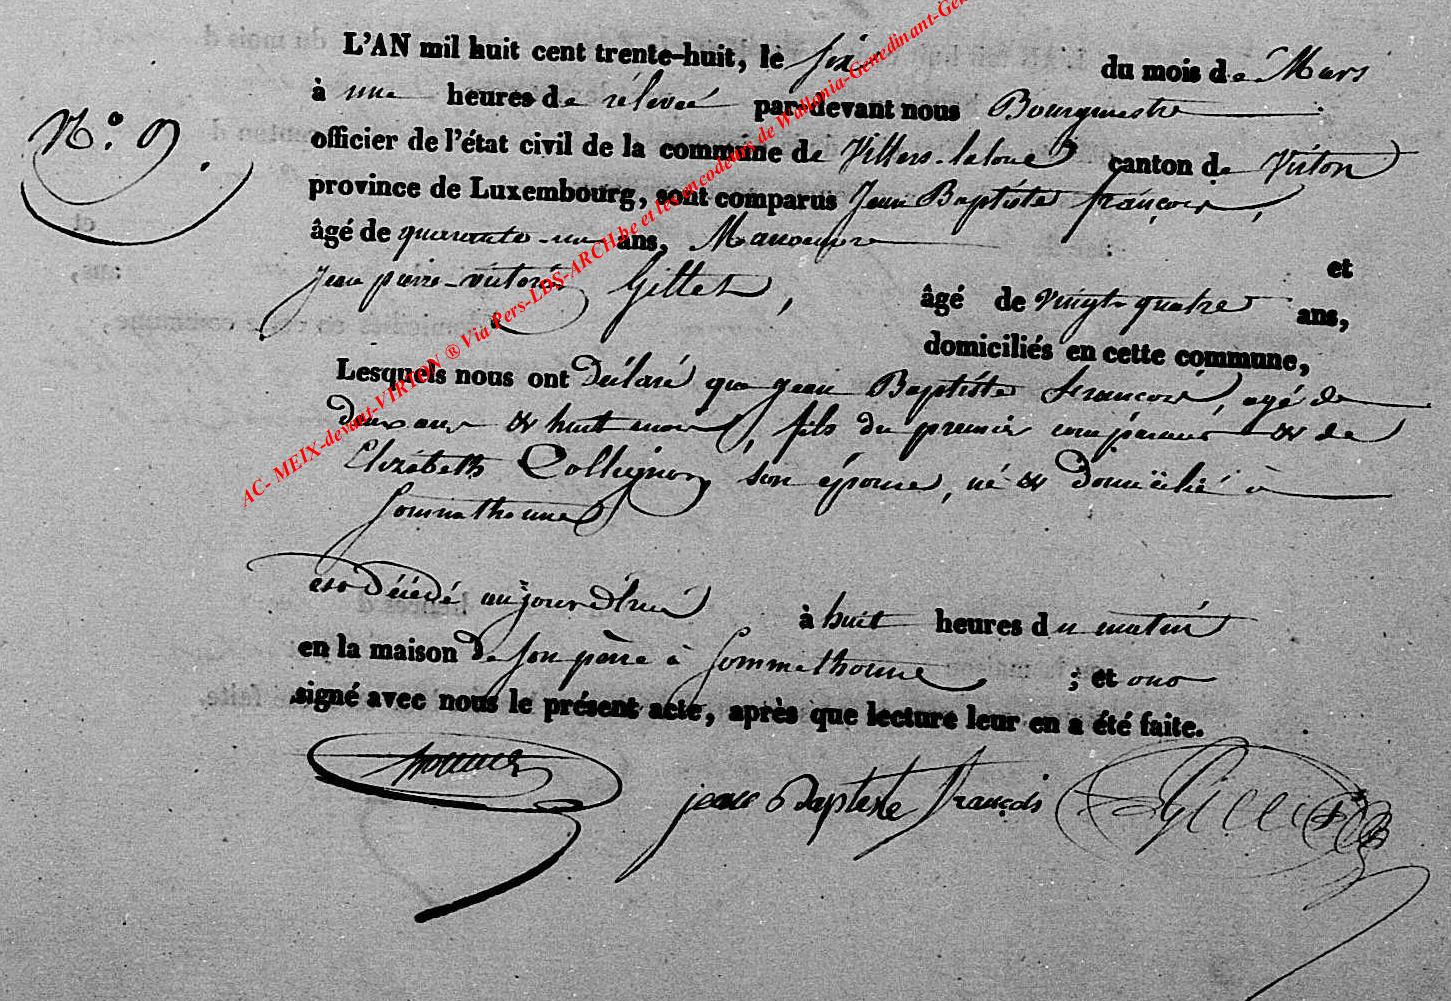 L'AN mil huit cent trente-huit, le six du mois de Mars
à une heures de relevée par-devant nous Bourgmestre
N.º 9.
officier de l'état civil de la commune de Villers-laloue canton de Virton
province de Luxembourg, sont comparus Jean Baptiste françois,
âgé de quarante-un ans, Manoeuvre et
Jean pierre-victor Gillet, âgé de vingt-quatre ans,
domiciliés en cette commune,
Lesquels nous ont déclaré que jean Baptiste francois, agé de
deux ans & huit mois, fils du premier comparant & de
Elizabeth Collignon son épouse, né & domicilié à
Sommethonne
est décédé aujourd'hui à huit heures du matin
en la maison de son père à Sommethonne ; et ont
signé avec nous le présent acte, après que lecture leur en a été faite.
jean Baptiste françois
AC- MEIX-devant-VIRTON ® Via Pers-LDS-ARCH.be et les encodeurs de Wallonia-Genedinant-Gen